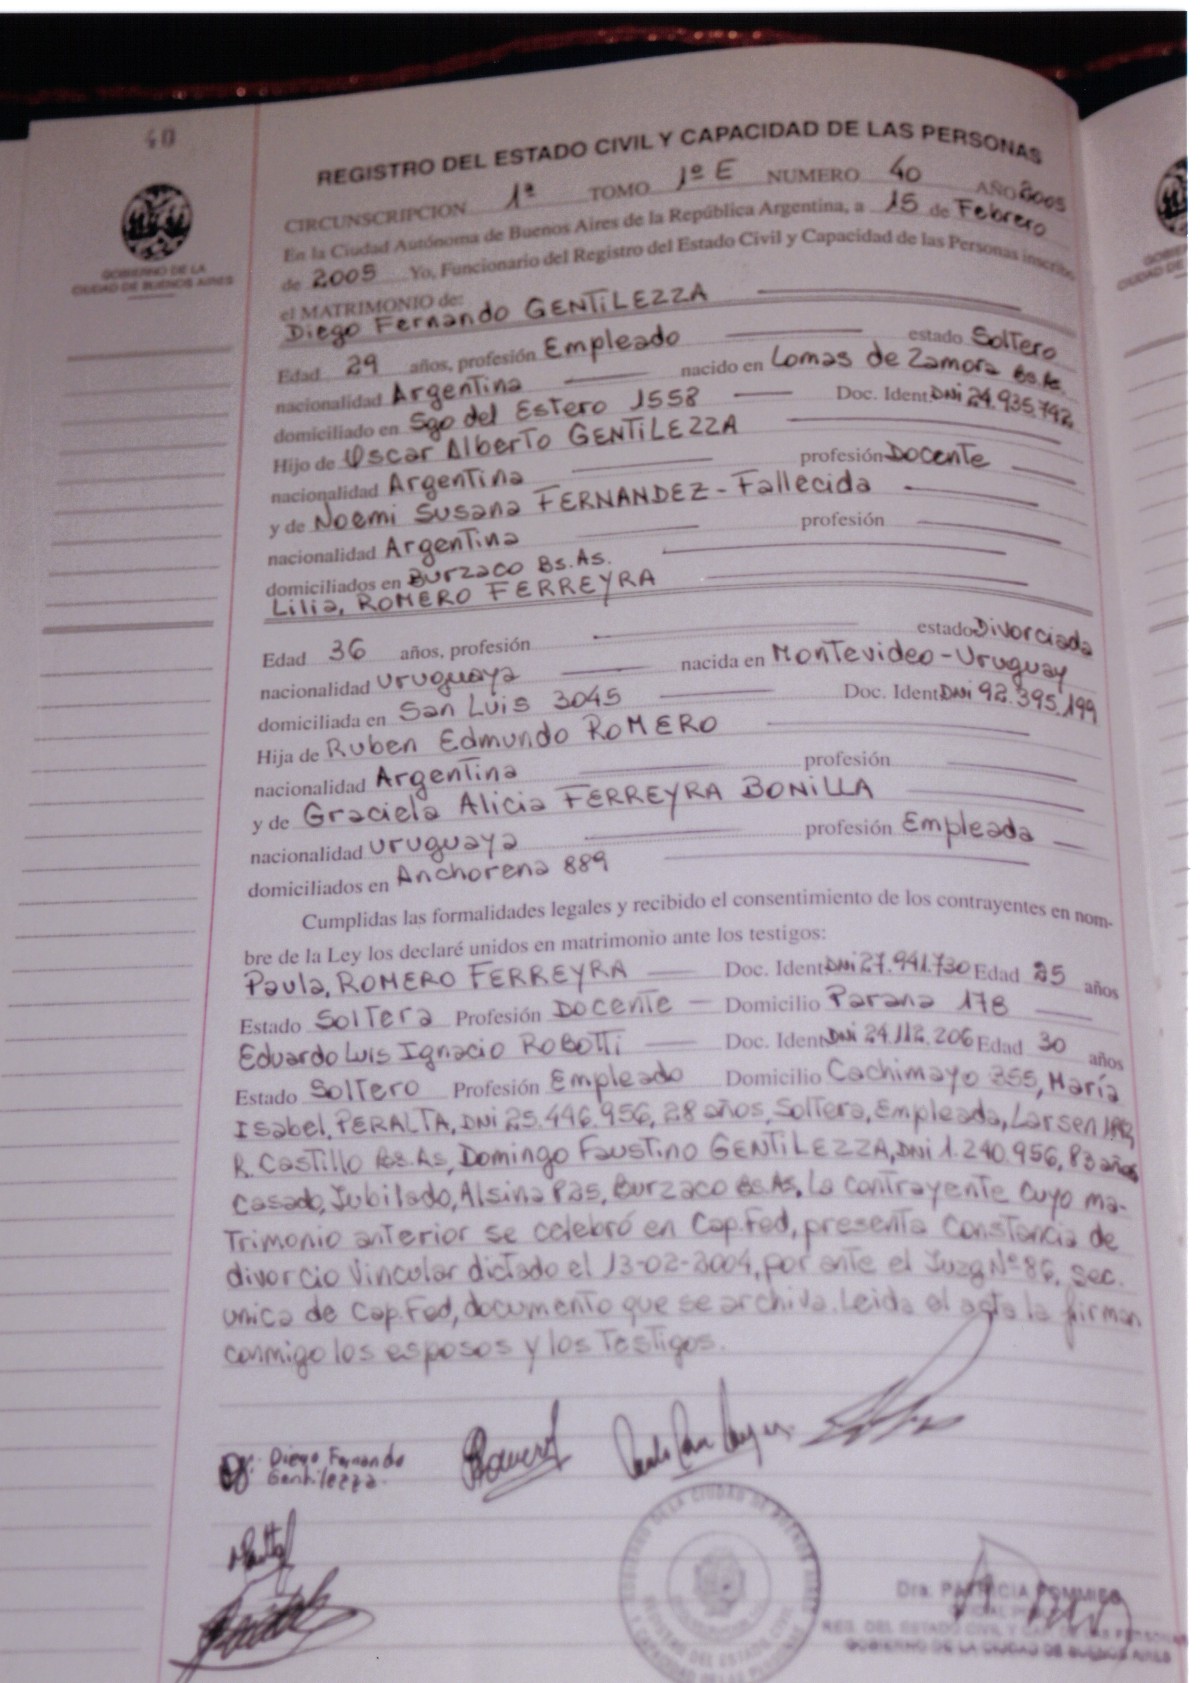 40
GOBIERNO DE LA
CIUDAD DE BUENOS AIRES
REGISTRO DEL ESTADO CIVIL Y CAPACIDAD DE LAS PERSONAS
CIRCUNSCRIPCION 1ª TOMO 1º E NUMERO 40 AÑO 2005
En la Ciudad Autónoma de Buenos Aires de la República Argentina, a 15 de Febrero
de 2005 Yo, Funcionario del Registro del Estado Civil y Capacidad de las Personas inscribo
el MATRIMONIO de:
Diego Fernando GENTILEZZA
Edad 29 años, profesión Empleado estado Soltero
nacionalidad Argentina nacido en Lomas de Zamora Bs.As.
domiciliado en Sgo del Estero 1558 Doc. Ident. DNI 24.935.742
Hijo de Oscar Alberto GENTILEZZA
nacionalidad Argentina profesión Docente
y de Noemi Susana FERNANDEZ - Fallecida
nacionalidad Argentina profesión
domiciliados en Burzaco Bs.As.
Lilia, ROMERO FERREYRA
Edad 36 años, profesión estado Divorciada
nacionalidad Uruguaya nacida en Montevideo - Uruguay
domiciliada en San Luis 3045 Doc. Ident. DNI 92.395.199
Hija de Ruben Edmundo ROMERO
nacionalidad Argentina profesión
y de Graciela Alicia FERREYRA BONILLA
nacionalidad Uruguaya profesión Empleada
domiciliados en Anchorena 889
Cumplidas las formalidades legales y recibido el consentimiento de los contrayentes en nom-
bre de la Ley los declaré unidos en matrimonio ante los testigos:
Paula, ROMERO FERREYRA Doc. Ident. DNI 27.941.730 Edad 25 años
Estado Soltera Profesión Docente Domicilio Parana 178
Eduardo Luis Ignacio ROBOTTI Doc. Ident. DNI 24.112.206 Edad 30 años
Estado Soltero Profesión Empleado Domicilio Cachimayo 355, María
Isabel, PERALTA, DNI 25.446.956, 28 años, Soltera, Empleada, Larsen
R. Castillo Bs.As, Domingo Faustino GENTILEZZA, DNI 1.240.956, 83 años
Casado, Jubilado, Alsina Burzaco Bs.As, La contrayente cuyo ma-
trimonio anterior se celebró en Cap.Fed, presenta Constancia de
divorcio Vincular dictado el 13-02-2004, por ante el Juzg Nº 86, Sec.
unica de Cap.Fed, documento que se archiva. Leida el acta la firman
conmigo los esposos y los Testigos.
Diego Fernando
Gentilezza
GOBIERNO DE LA CIUDAD DE BUENOS AIRES
REGISTRO DEL ESTADO CIVIL Y CAPACIDAD DE LAS PERSONAS
Dra. PATRICIA
REG. DEL ESTADO CIVIL Y CAP. DE LAS PERSONAS
GOBIERNO DE LA CIUDAD DE BUENOS AIRES